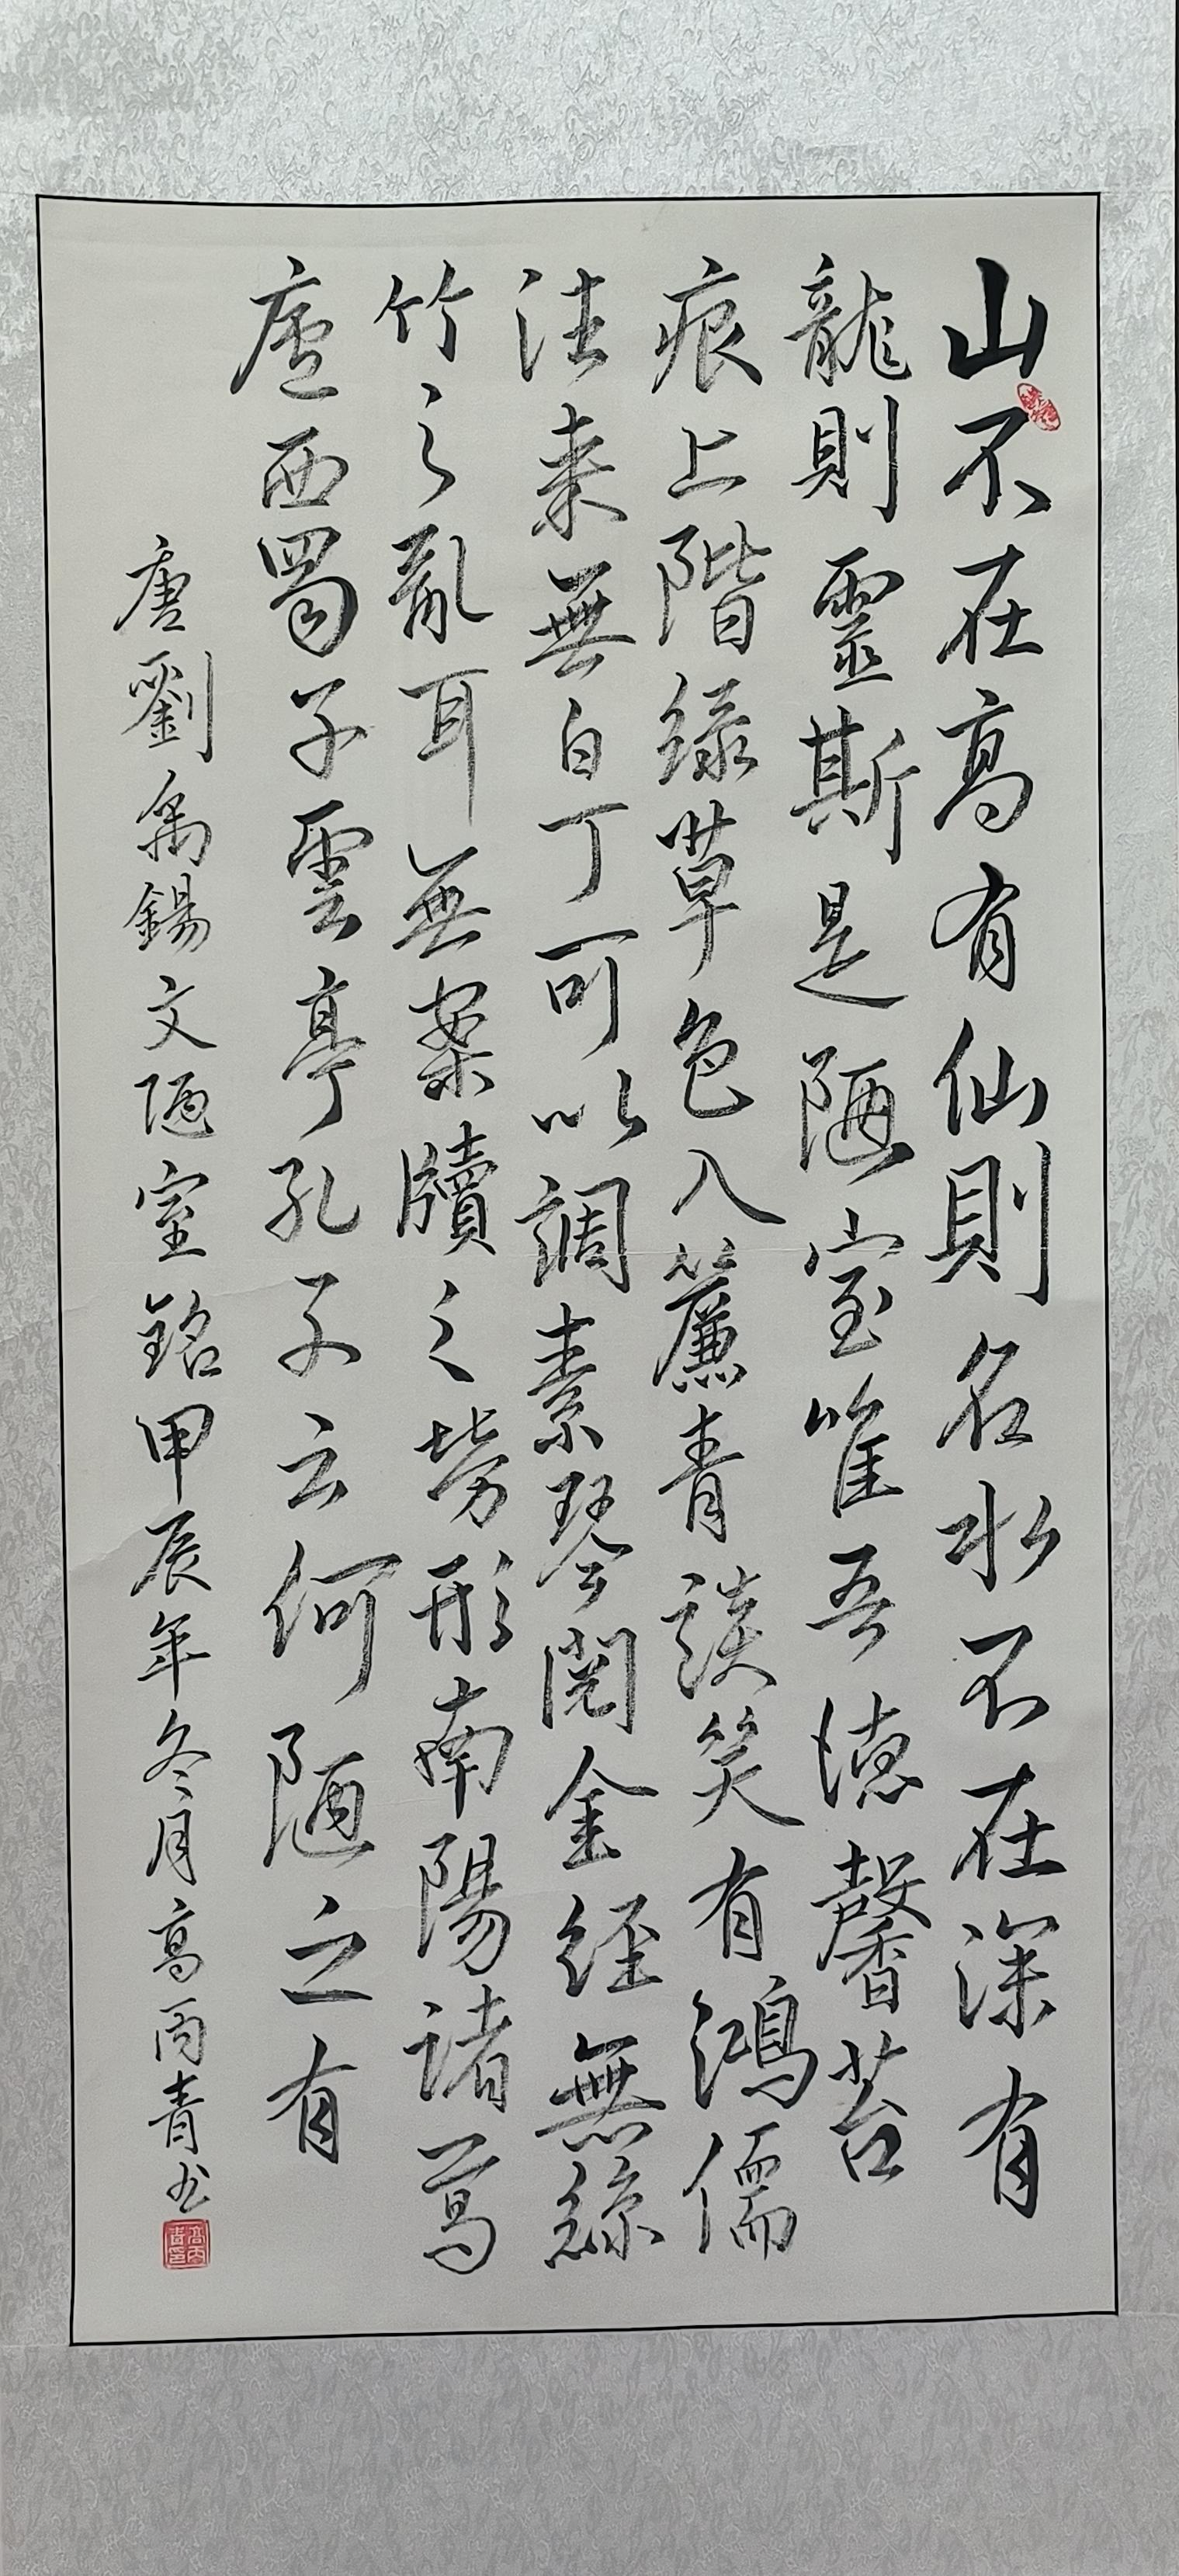 山不在高有仙則名水不在深有
龍則靈斯是陋室唯吾德馨苔
痕上階緑草色入簾青談笑有鴻儒
往来無白丁可以調素琴閲金経無絲
竹之亂耳無案牘之勞形南陽諸葛
廬西蜀子雲亭孔子云何陋之有
唐劉禹錫文陋室銘甲辰年冬月高丙青书